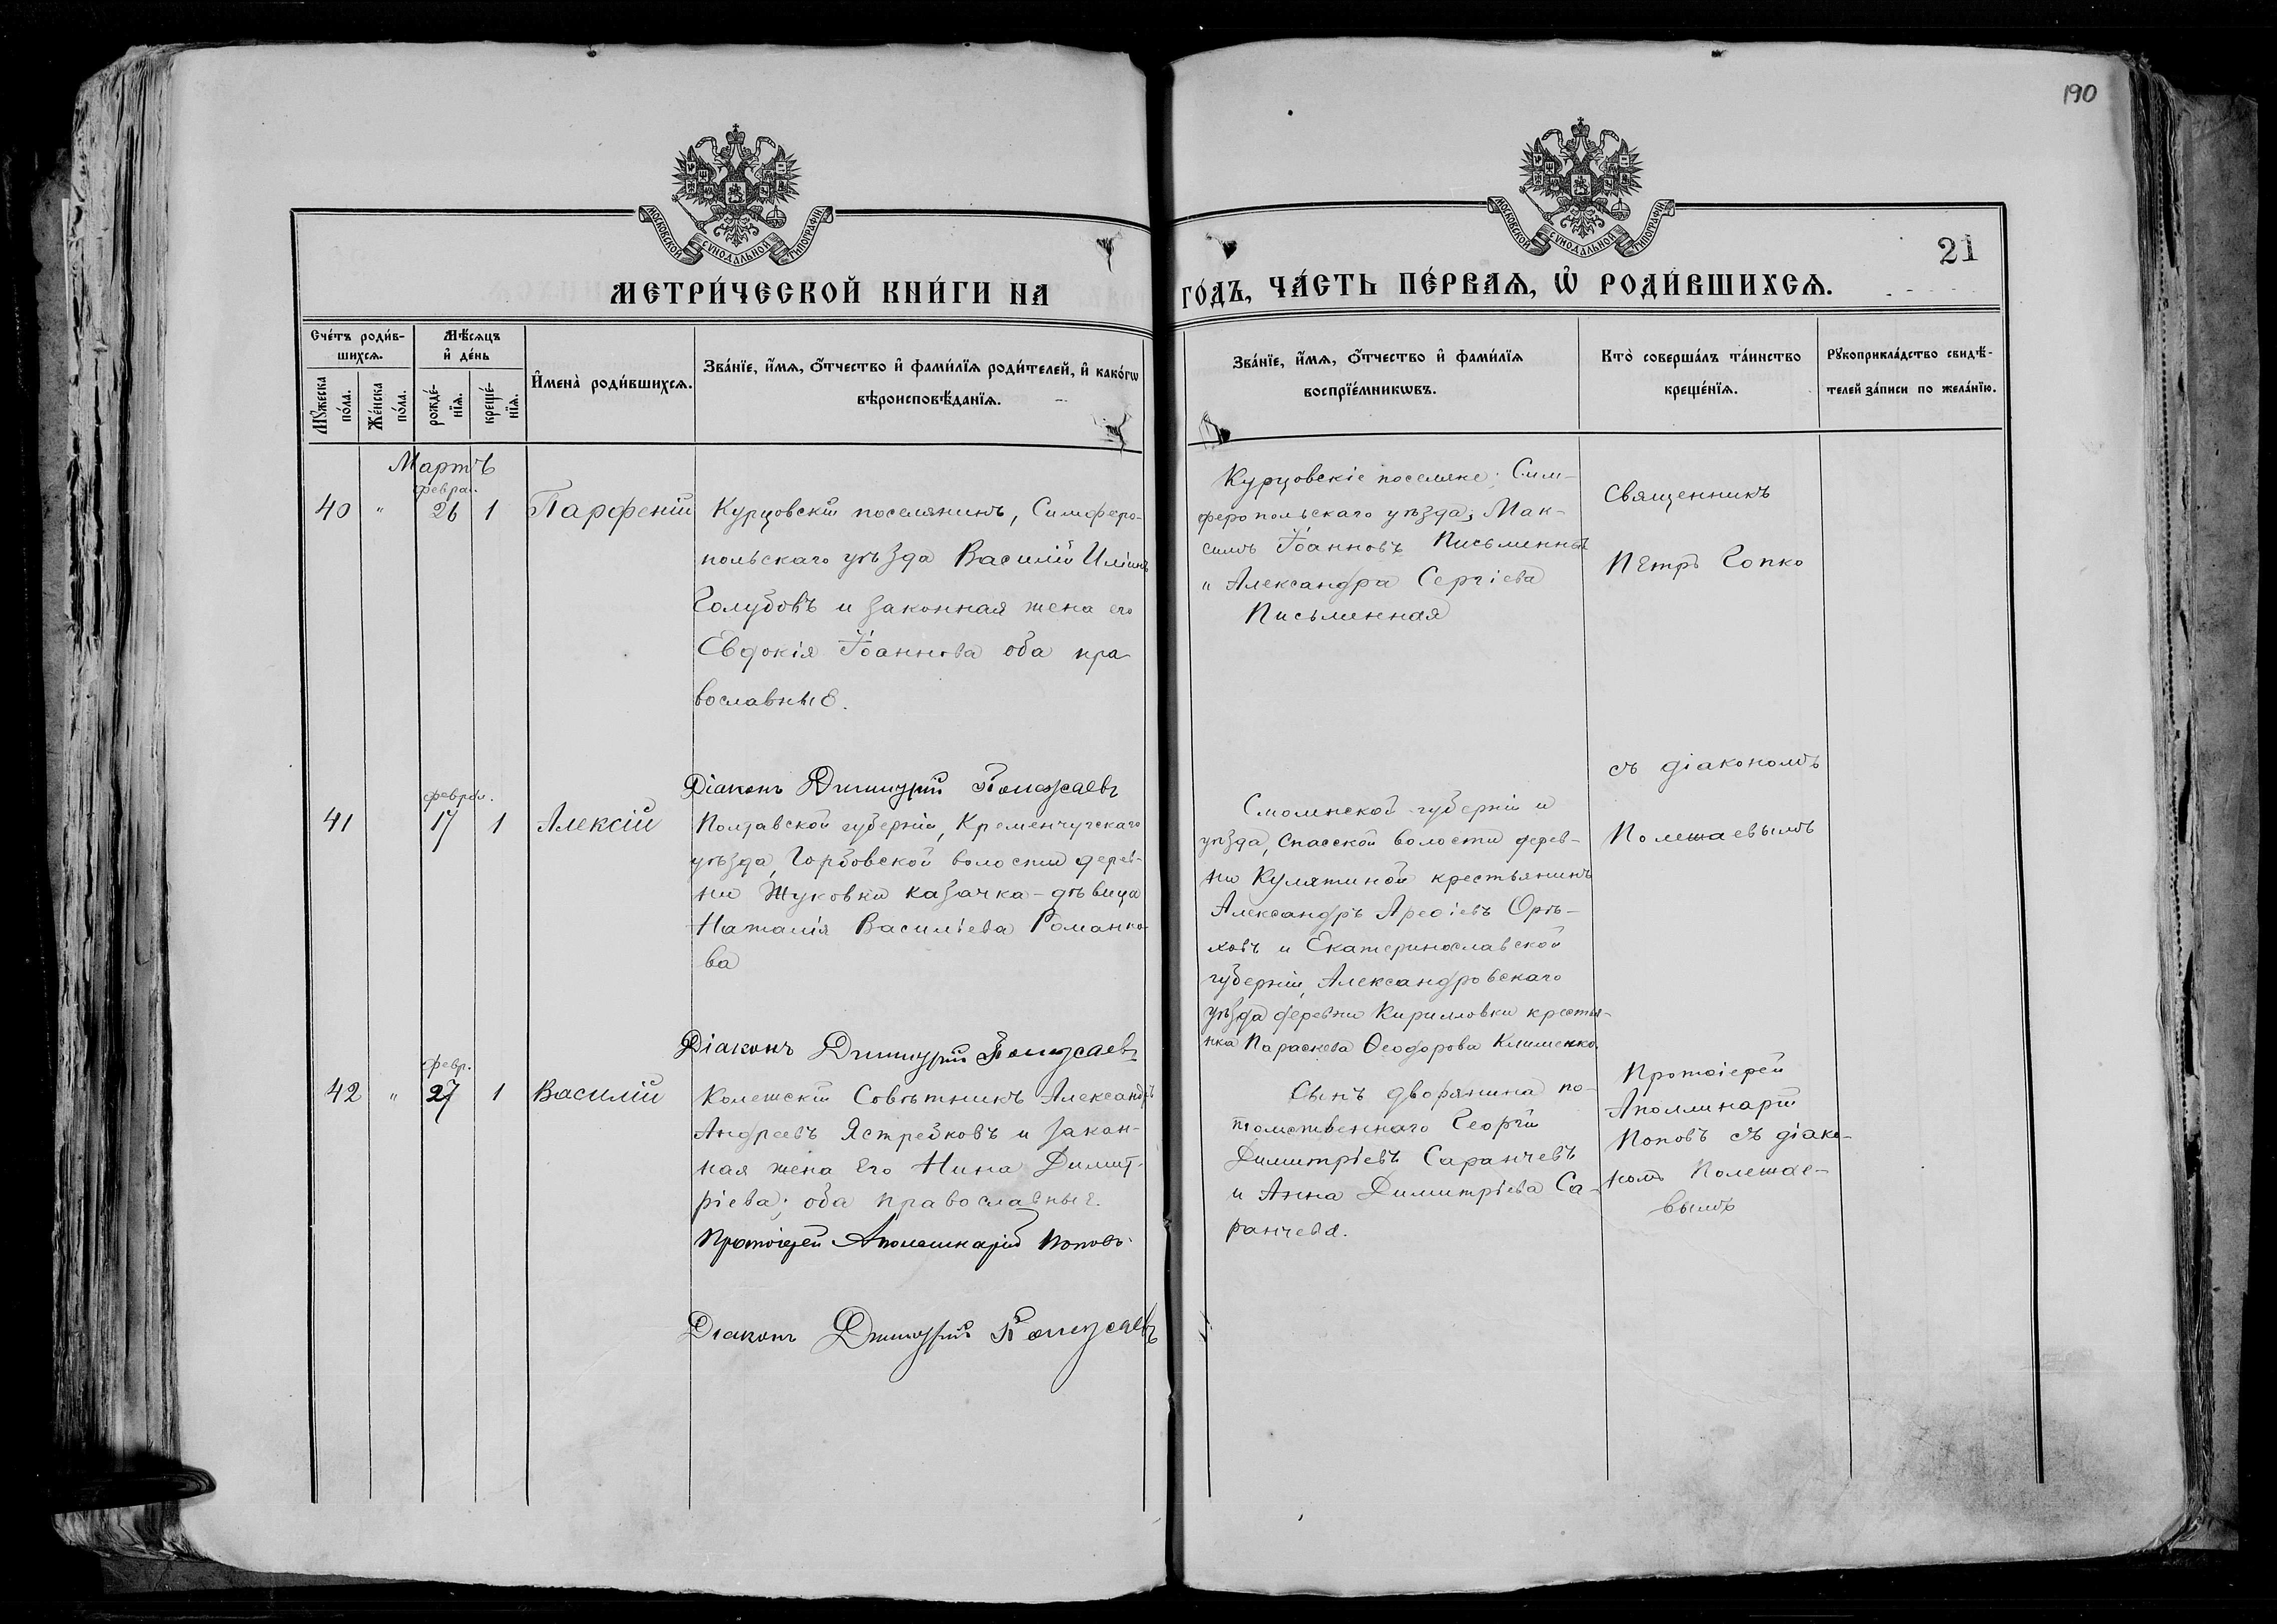 190
МОСКОВСКОЙ СѴНОДАЛЬНОЙ ТИПОГРАФІИ
МОСКОВСКОЙ СѴНОДАЛЬНОЙ ТИПОГРАФІИ
21
МЕТРИ́ЧЕСКОЙ КНИ́ГИ НА
ГО́ДЪ, ЧА́СТЬ ПЕ́РВАѦ, Ѽ РОДИ́ВШИХСѦ.
Сче́тъ роди́в-
шихсѧ.
Мꙋ́жеска
по́ла.
Же́нска
по́ла.
Мѣ́сѧцъ
и҆ де́нь
рожде́-
нїѧ.
креще́-
нїѧ.
И҆мена̀ роди́вшихсѧ.
Зва́нїе, и҆́мѧ, ѻ҆́тчество и҆ фами́лїѧ роди́телей, и҆ како́гѡ
вѣроисповѣ́данїѧ.
Зва́нїе, и҆́мѧ, ѻ҆́тчество и҆ фами́лїѧ
воспрїе́мникѡвъ.
Кто̀ соверша́лъ та́инство
креще́нїѧ.
Рꙋкоприкла́дство свидѣ́-
телей за́писи по жела́нїю.
Мартъ
Феврал.
40 " 26 1 Парфеній
Курцовскій поселянинъ, Симферо-
польскаго уѣзда Василій Иліинъ
Голубовъ и законная жена его
Евдокія Іоаннова оба пра-
вославные.
Курцовскіе поселяне, Сим-
феропольскаго уѣзда; Мак-
симъ Іоанновъ Письменный
и Александра Сергіева
Письменная
Священникъ
Петръ Гопко
съ діакономъ
Полешаевымъ
Діаконъ Димитрій Полешаевъ
Феврал.
41 17 1 Алексій
Полтавской губерніи, Кременчугскаго
уѣзда, Горбовской волости дерев-
ни Жуковки казачка-дѣвица
Наталія Василіева Романко-
ва
Смоленской губерніи и
уѣзда, Спасской волости дерев-
ни Кулятиной крестьянинъ
Александръ Арефіевъ Орѣ-
ховъ и Екатеринославской
губерніи, Александровскаго
уѣзда деревни Кирилловки крестья-
нка Параскева Ѳеодорова Клименко.
Діаконъ Димитрій Полешаевъ
Февр.
42 " 27 1 Василій
Колежскій Совѣтникъ Александръ
Андреевъ Ястребковъ и закон-
ная жена его Нина Димит-
ріева; оба православные.
Протоіерей Аполлинарій Поповъ.
Діаконъ Димитрій Полешаевъ
Сынъ дворянина по-
томственнаго Георгій
Димитріевъ Саранчевъ
и Анна Димитріева Са-
ранчева.
Протоіерей
Аполлинарій
Поповъ съ діако-
номъ Полешае-
вымъ